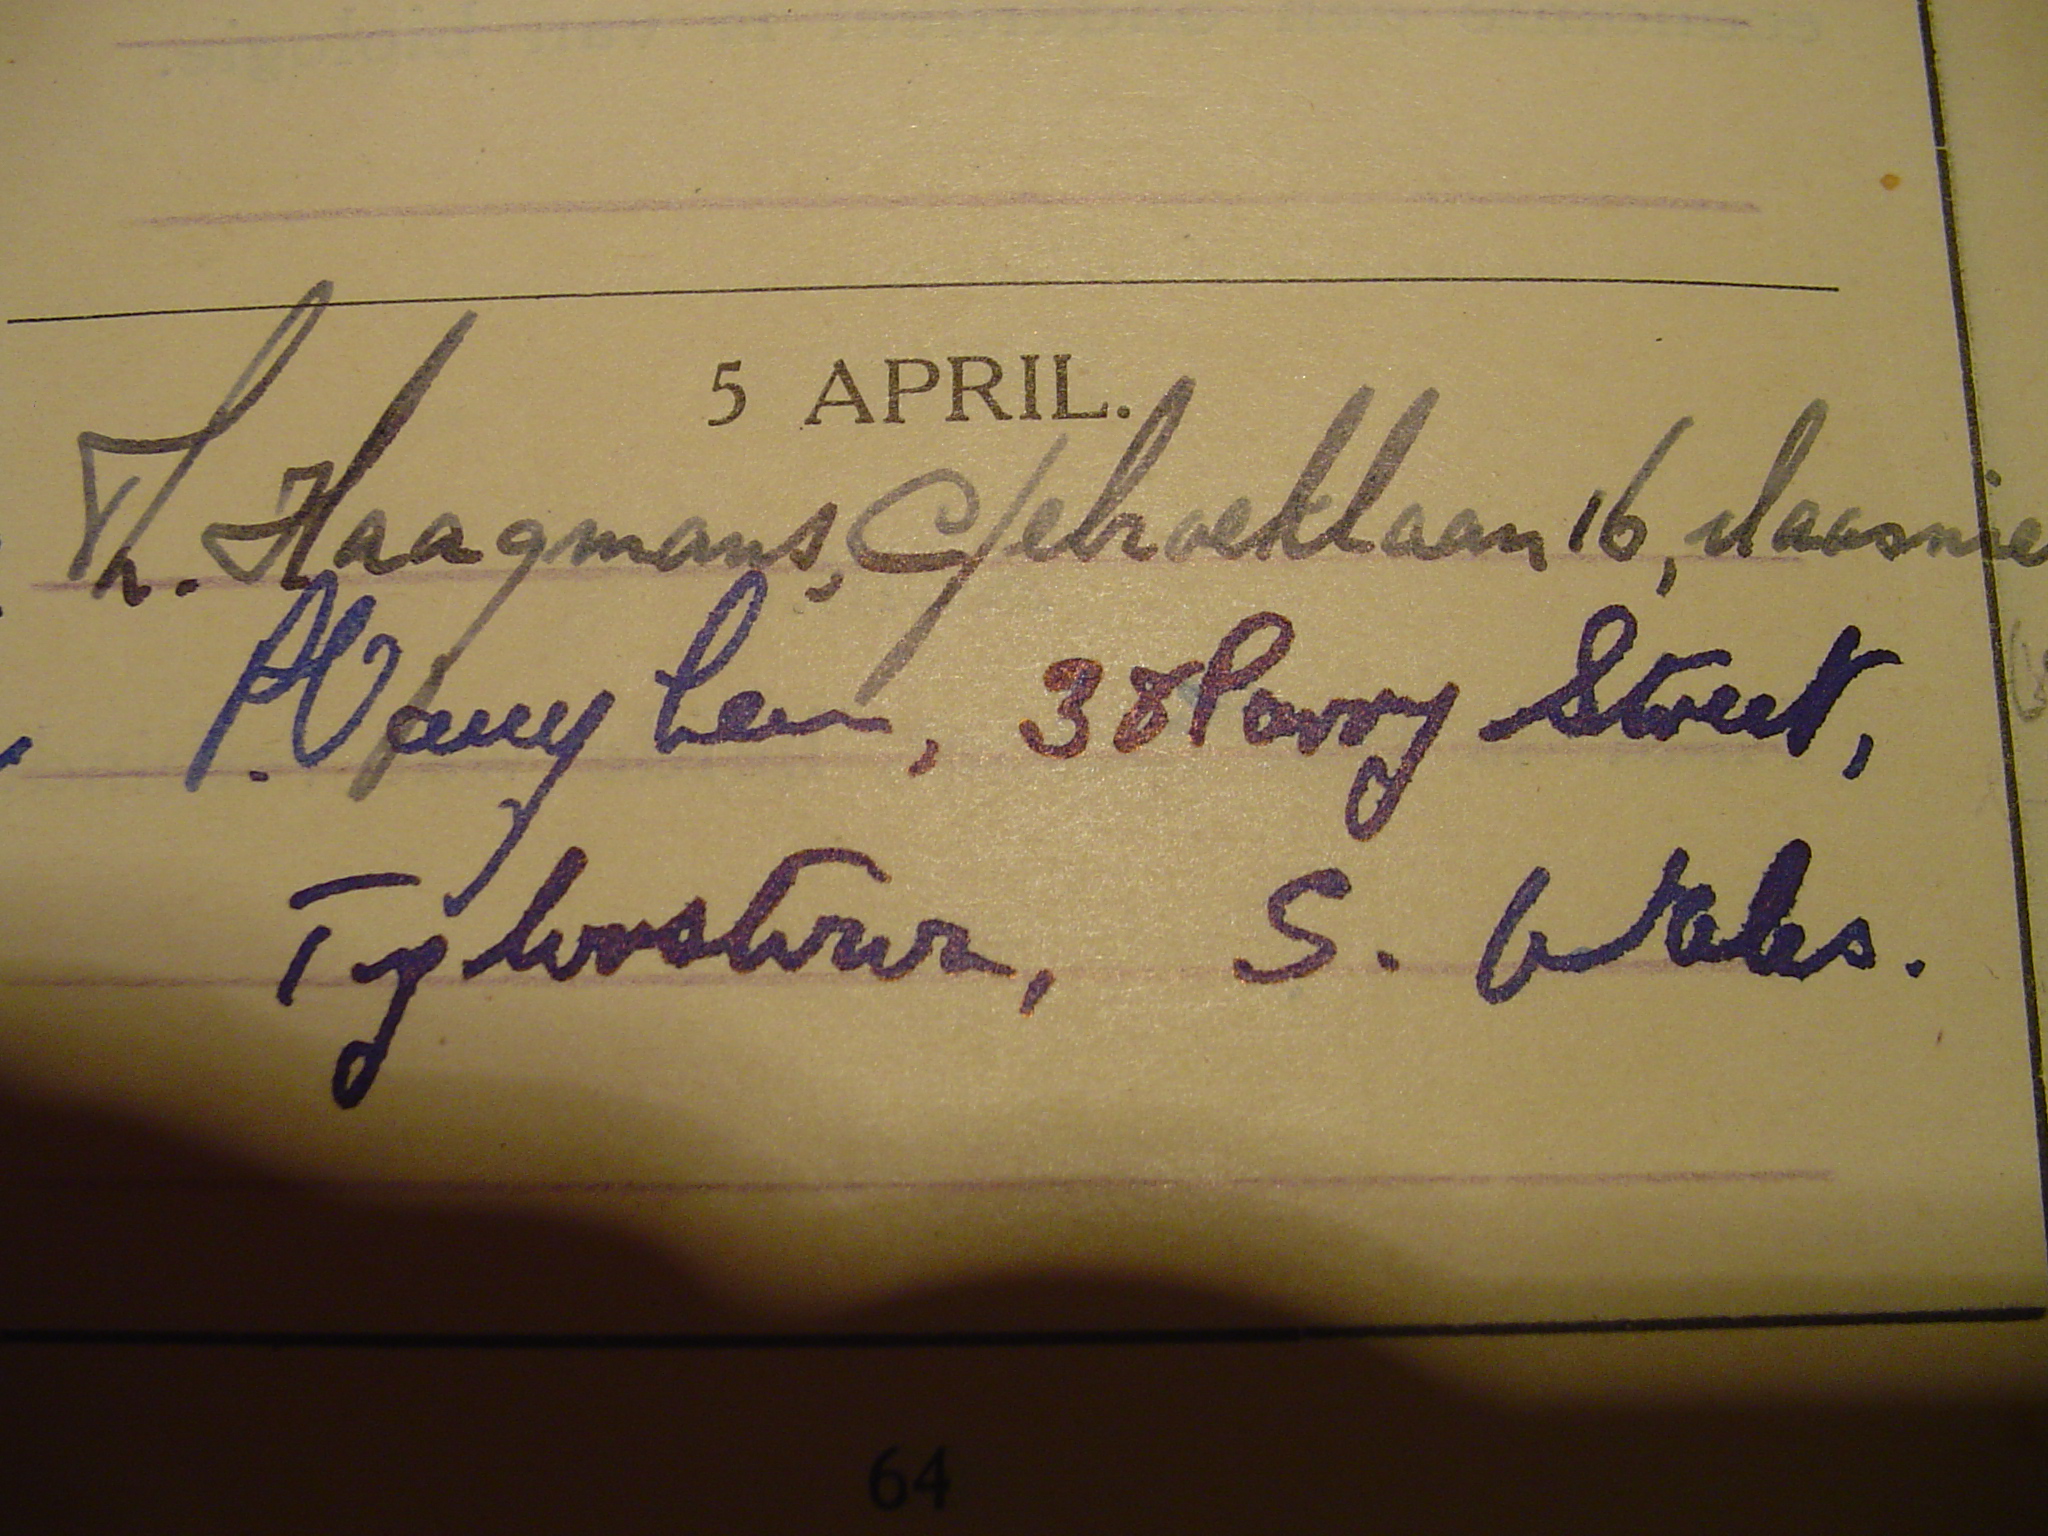 5 APRIL.
Th. Haagmans, Gebroeklaan 16, Maasnie
P. Vaughan, 38 Parry Street,
Tylorstown, S. Wales.
64